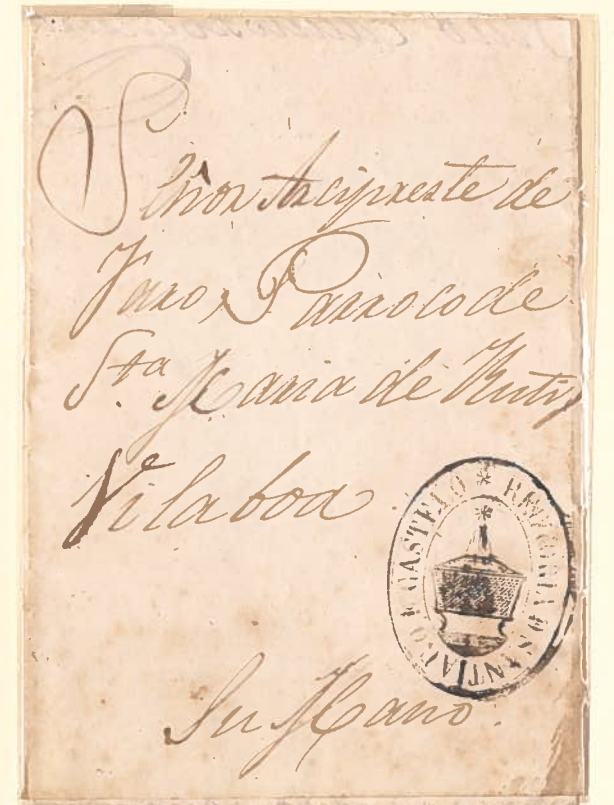 Señor Arcipreste de
Faro, Parroco de
Sta. Maria de Rutis
Vilaboa
Su Mano.
RECTORIA D SANTIAGO D CASTELO